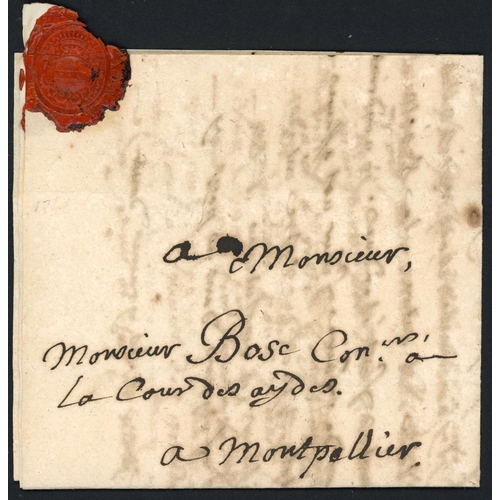 a Monsieur,
Monsieur Bosc Con.er à
la Cour des aydes.
a Montpellier.